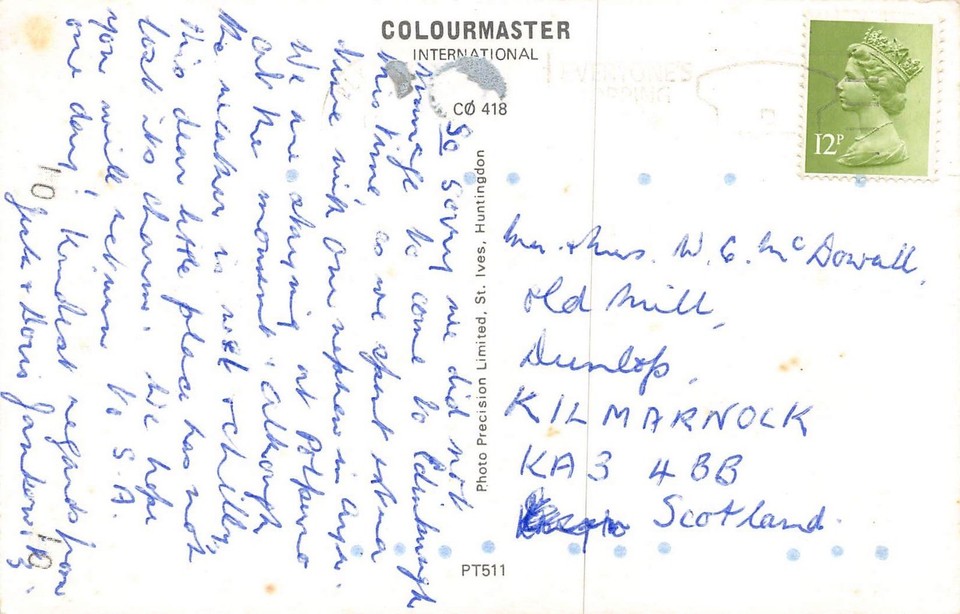 COLOURMASTER
INTERNATIONAL
CØ 418
So sorry we did not
manage to come to Edinburgh
this time, as we spent extra
time with our nephew in
We are staying at Polperro
at the moment & although
the weather is wet & chilly,
this dear little place has not
lost its charm. We hope
you will return to S.A.
one day! Kindest regards from
Jack & Doris
Photo Precision Limited, St. Ives, Huntingdon
EVERYONE'S
12P
Mr. & Mrs. W. G. McDowall,
Old Mill,
Dunlop,
KILMARNOCK
KA3 4BB
Scotland.
PT511
10